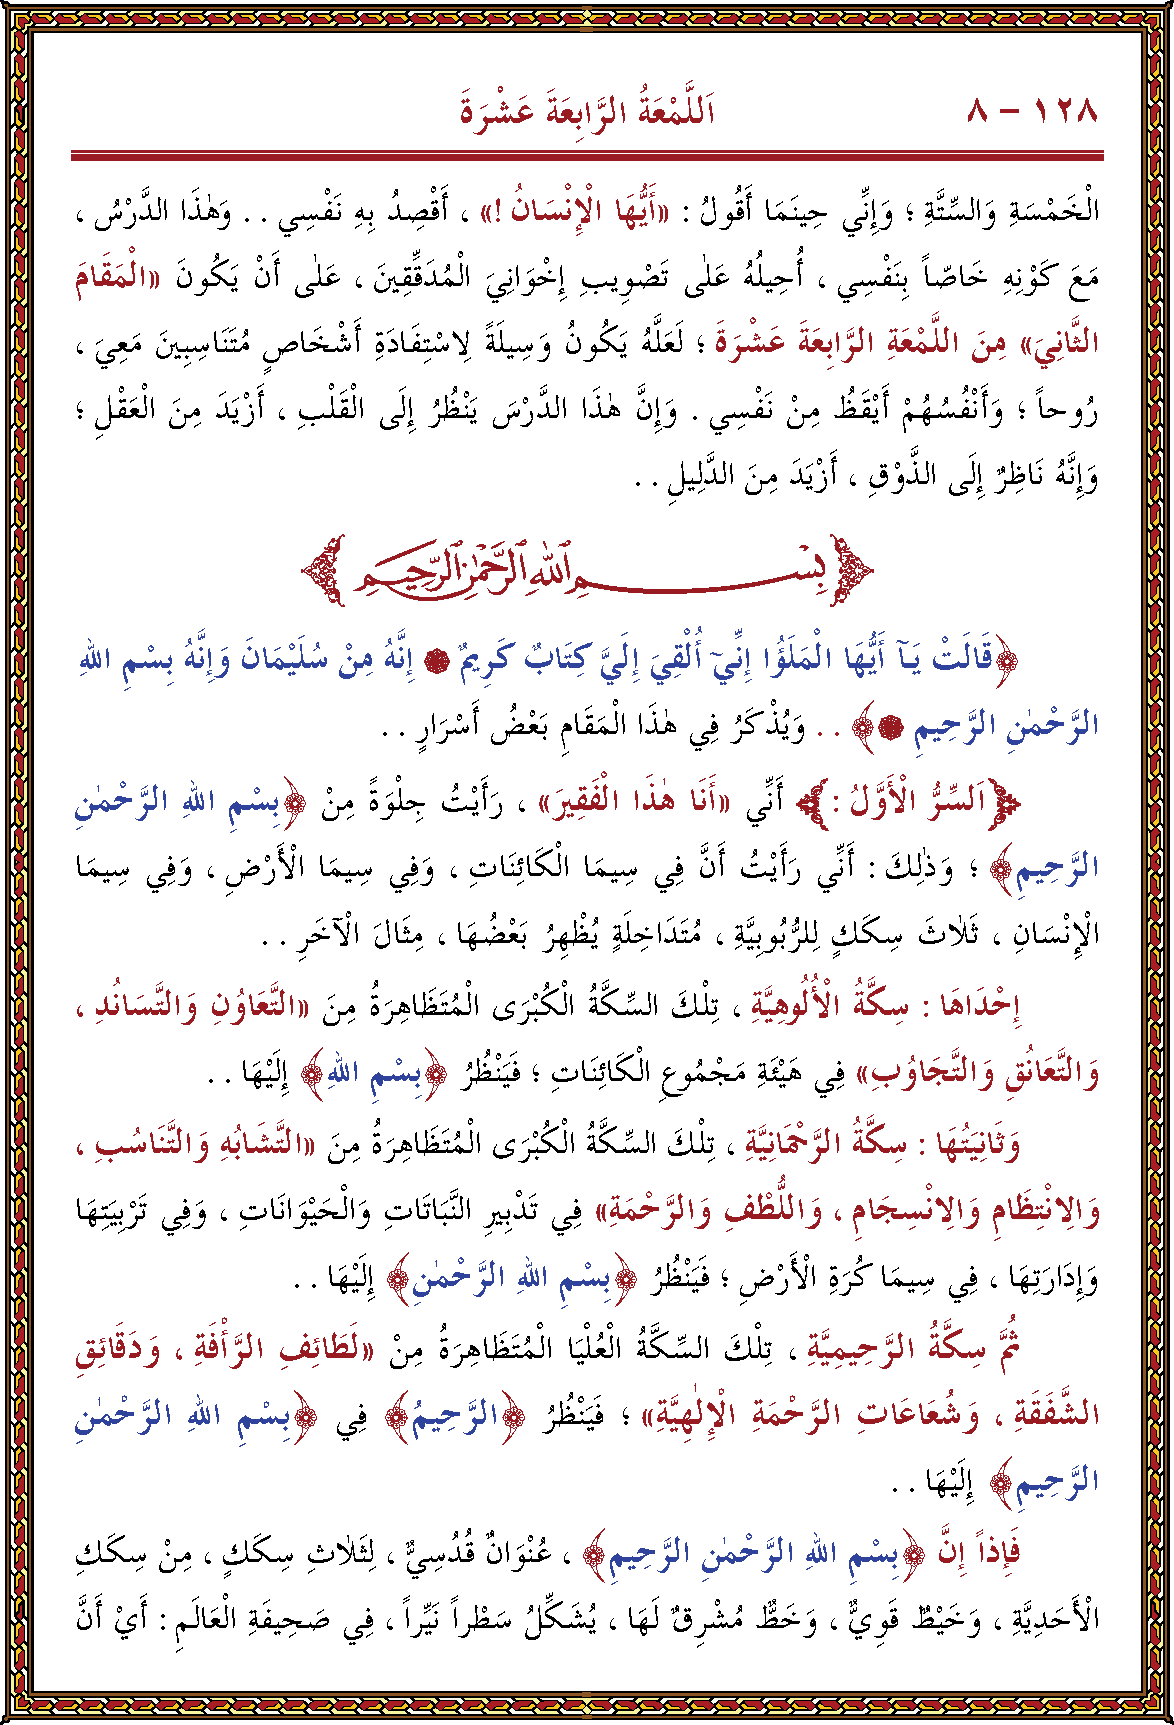 ١٢٨ – ٨ اَللَّمْعَةُ الرَّابِعَةَ عَشْرَةَ
الْخَمْسَةِ وَالسِّتَّةِ ؛ وَإِنِّي حِينَمَا أَقُولُ : «أَيُّهَا الْإِنْسَانُ !» ، أَقْصِدُ بِهِ نَفْسِي . . وَهٰذَا الدَّرْسُ ،
مَعَ كَوْنِهِ خَاصّاً بِنَفْسِي ، أُحِيلُهُ عَلٰى تَصْوِيبِ إِخْوَانِيَ الْمُدَقِّقِينَ ، عَلٰى أَنْ يَكُونَ «الْمَقَامَ
الثَّانِيَ» مِنَ اللَّمْعَةِ الرَّابِعَةَ عَشْرَةَ ؛ لَعَلَّهُ يَكُونُ وَسِيلَةً لِاسْتِفَادَةِ أَشْخَاصٍ مُتَنَاسِبِينَ مَعِيَ ،
رُوحاً ؛ وَأَنْفُسُهُمْ أَيْقَظُ مِنْ نَفْسِي . وَإِنَّ هٰذَا الدَّرْسَ يَنْظُرُ إِلَى الْقَلْبِ ، أَزْيَدَ مِنَ الْعَقْلِ ؛
وَإِنَّهُ نَاظِرٌ إِلَى الذَّوْقِ ، أَزْيَدَ مِنَ الدَّلِيلِ . .
بِسْمِ اللهِ الرَّحْمٰنِ الرَّحِيمِ
﴿قَالَتْ يَـآ أَيُّهَا الْمَلَؤُا إِنِّيٓ أُلْقِيَ إِلَيَّ كِتَابٌ كَرِيمٌ ۞ إِنَّهُ مِنْ سُلَيْمَانَ وَإِنَّهُ بِسْمِ اللهِ
الرَّحْمٰنِ الرَّحِيمِ ۞﴾ . . وَيُذْكَرُ فِي هٰذَا الْمَقَامِ بَعْضُ أَسْرَارٍ . .
﴿اَلسِّرُّ الْأَوَّلُ :﴾ أَنِّي «أَنَا هٰذَا الْفَقِيرَ» ، رَأَيْتُ جِلْوَةً مِنْ ﴿بِسْمِ اللهِ الرَّحْمٰنِ
الرَّحِيمِ﴾ ؛ وَذٰلِكَ : أَنِّي رَأَيْتُ أَنَّ فِي سِيمَا الْكَائِنَاتِ ، وَفِي سِيمَا الْأَرْضِ ، وَفِي سِيمَا
الْإِنْسَانِ ، ثَلٰاثَ سِكَكٍ لِلرُّبُوبِيَّةِ ، مُتَدَاخِلَةٍ يُظْهِرُ بَعْضُهَا ، مِثَالَ الْآخَرِ . .
إِحْدَاهَا : سِكَّةُ الْأُلُوهِيَّةِ ، تِلْكَ السِّكَّةُ الْكُبْرَى الْمُتَظَاهِرَةُ مِنَ «التَّعَاوُنِ وَالتَّسَانُدِ ،
وَالتَّعَانُقِ وَالتَّجَاوُبِ» فِي هَيْئَةِ مَجْمُوعِ الْكَائِنَاتِ ؛ فَيَنْظُرُ ﴿بِسْمِ اللهِ﴾ إِلَيْهَا . .
وَثَانِيَتُهَا : سِكَّةُ الرَّحْمَانِيَّةِ ، تِلْكَ السِّكَّةُ الْكُبْرَى الْمُتَظَاهِرَةُ مِنَ «التَّشَابُهِ وَالتَّنَاسُبِ ،
وَالِانْتِظَامِ وَالِانْسِجَامِ ، وَاللُّطْفِ وَالرَّحْمَةِ» فِي تَدْبِيرِ النَّبَاتَاتِ وَالْحَيْوَانَاتِ ، وَفِي تَرْبِيَتِهَا
وَإِدَارَتِهَا ، فِي سِيمَا كُرَةِ الْأَرْضِ ؛ فَيَنْظُرُ ﴿بِسْمِ اللهِ الرَّحْمٰنِ﴾ إِلَيْهَا . .
ثُمَّ سِكَّةُ الرَّحِيمِيَّةِ ، تِلْكَ السِّكَّةُ الْعُلْيَا الْمُتَظَاهِرَةُ مِنْ «لَطَائِفِ الرَّأْفَةِ ، وَدَقَائِقِ
الشَّفَقَةِ ، وَشُعَاعَاتِ الرَّحْمَةِ الْإِلٰهِيَّةِ» ؛ فَيَنْظُرُ ﴿الرَّحِيمُ﴾ فِي ﴿بِسْمِ اللهِ الرَّحْمٰنِ
الرَّحِيمِ﴾ إِلَيْهَا . .
فَإِذاً إِنَّ ﴿بِسْمِ اللهِ الرَّحْمٰنِ الرَّحِيمِ﴾ ، عُنْوَانٌ قُدُسِيٌّ ، لِثَلٰاثِ سِكَكٍ ، مِنْ سِكَكِ
الْأَحَدِيَّةِ ، وَخَيْطٌ قَوِيٌّ ، وَخَطٌّ مُشْرِقٌ لَهَا ، يُشَكِّلُ سَطْراً نَيِّراً ، فِي صَحِيفَةِ الْعَالَمِ : أَيْ أَنَّ